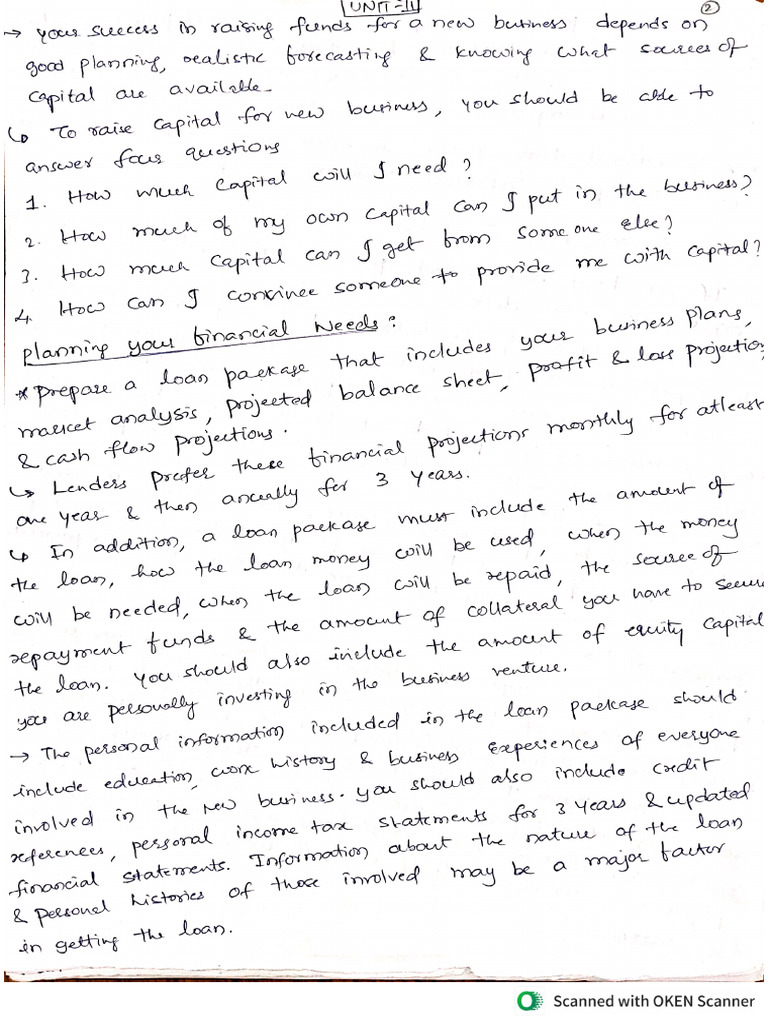 UNIT-II
2
→ your success in raising funds for a new business depends on
good planning, realistic forecasting & knowing what sources of
capital are available.
↳ To raise capital for new business, you should be able to
answer four questions
1. How much capital will I need?
2. How much of my own capital can I put in the business?
3. How much capital can I get from someone else?
4. How can I convince someone to provide me with capital?
Planning your financial Needs:
* Prepare a loan package that includes your business plans,
market analysis, projected balance sheet, profit & loss projection,
& cash flow projections.
↳ Lenders prefer these financial projections monthly for atleast
one year & then annually for 3 years.
↳ In addition, a loan package must include the amount of
the loan, how the loan money will be used, when the money
will be needed, when the loan will be repaid, the source of
repayment funds & the amount of collateral you have to secure
the loan. you should also include the amount of equity capital
you are personally investing in the business venture.
→ The personal information included in the loan package should
include education, work history & business experiences of everyone
involved in the new business. you should also include credit
references, personal income tax statements for 3 years & updated
financial statements. Information about the nature of the loan
& personal histories of those involved may be a major factor
in getting the loan.
Scanned with OKEN Scanner